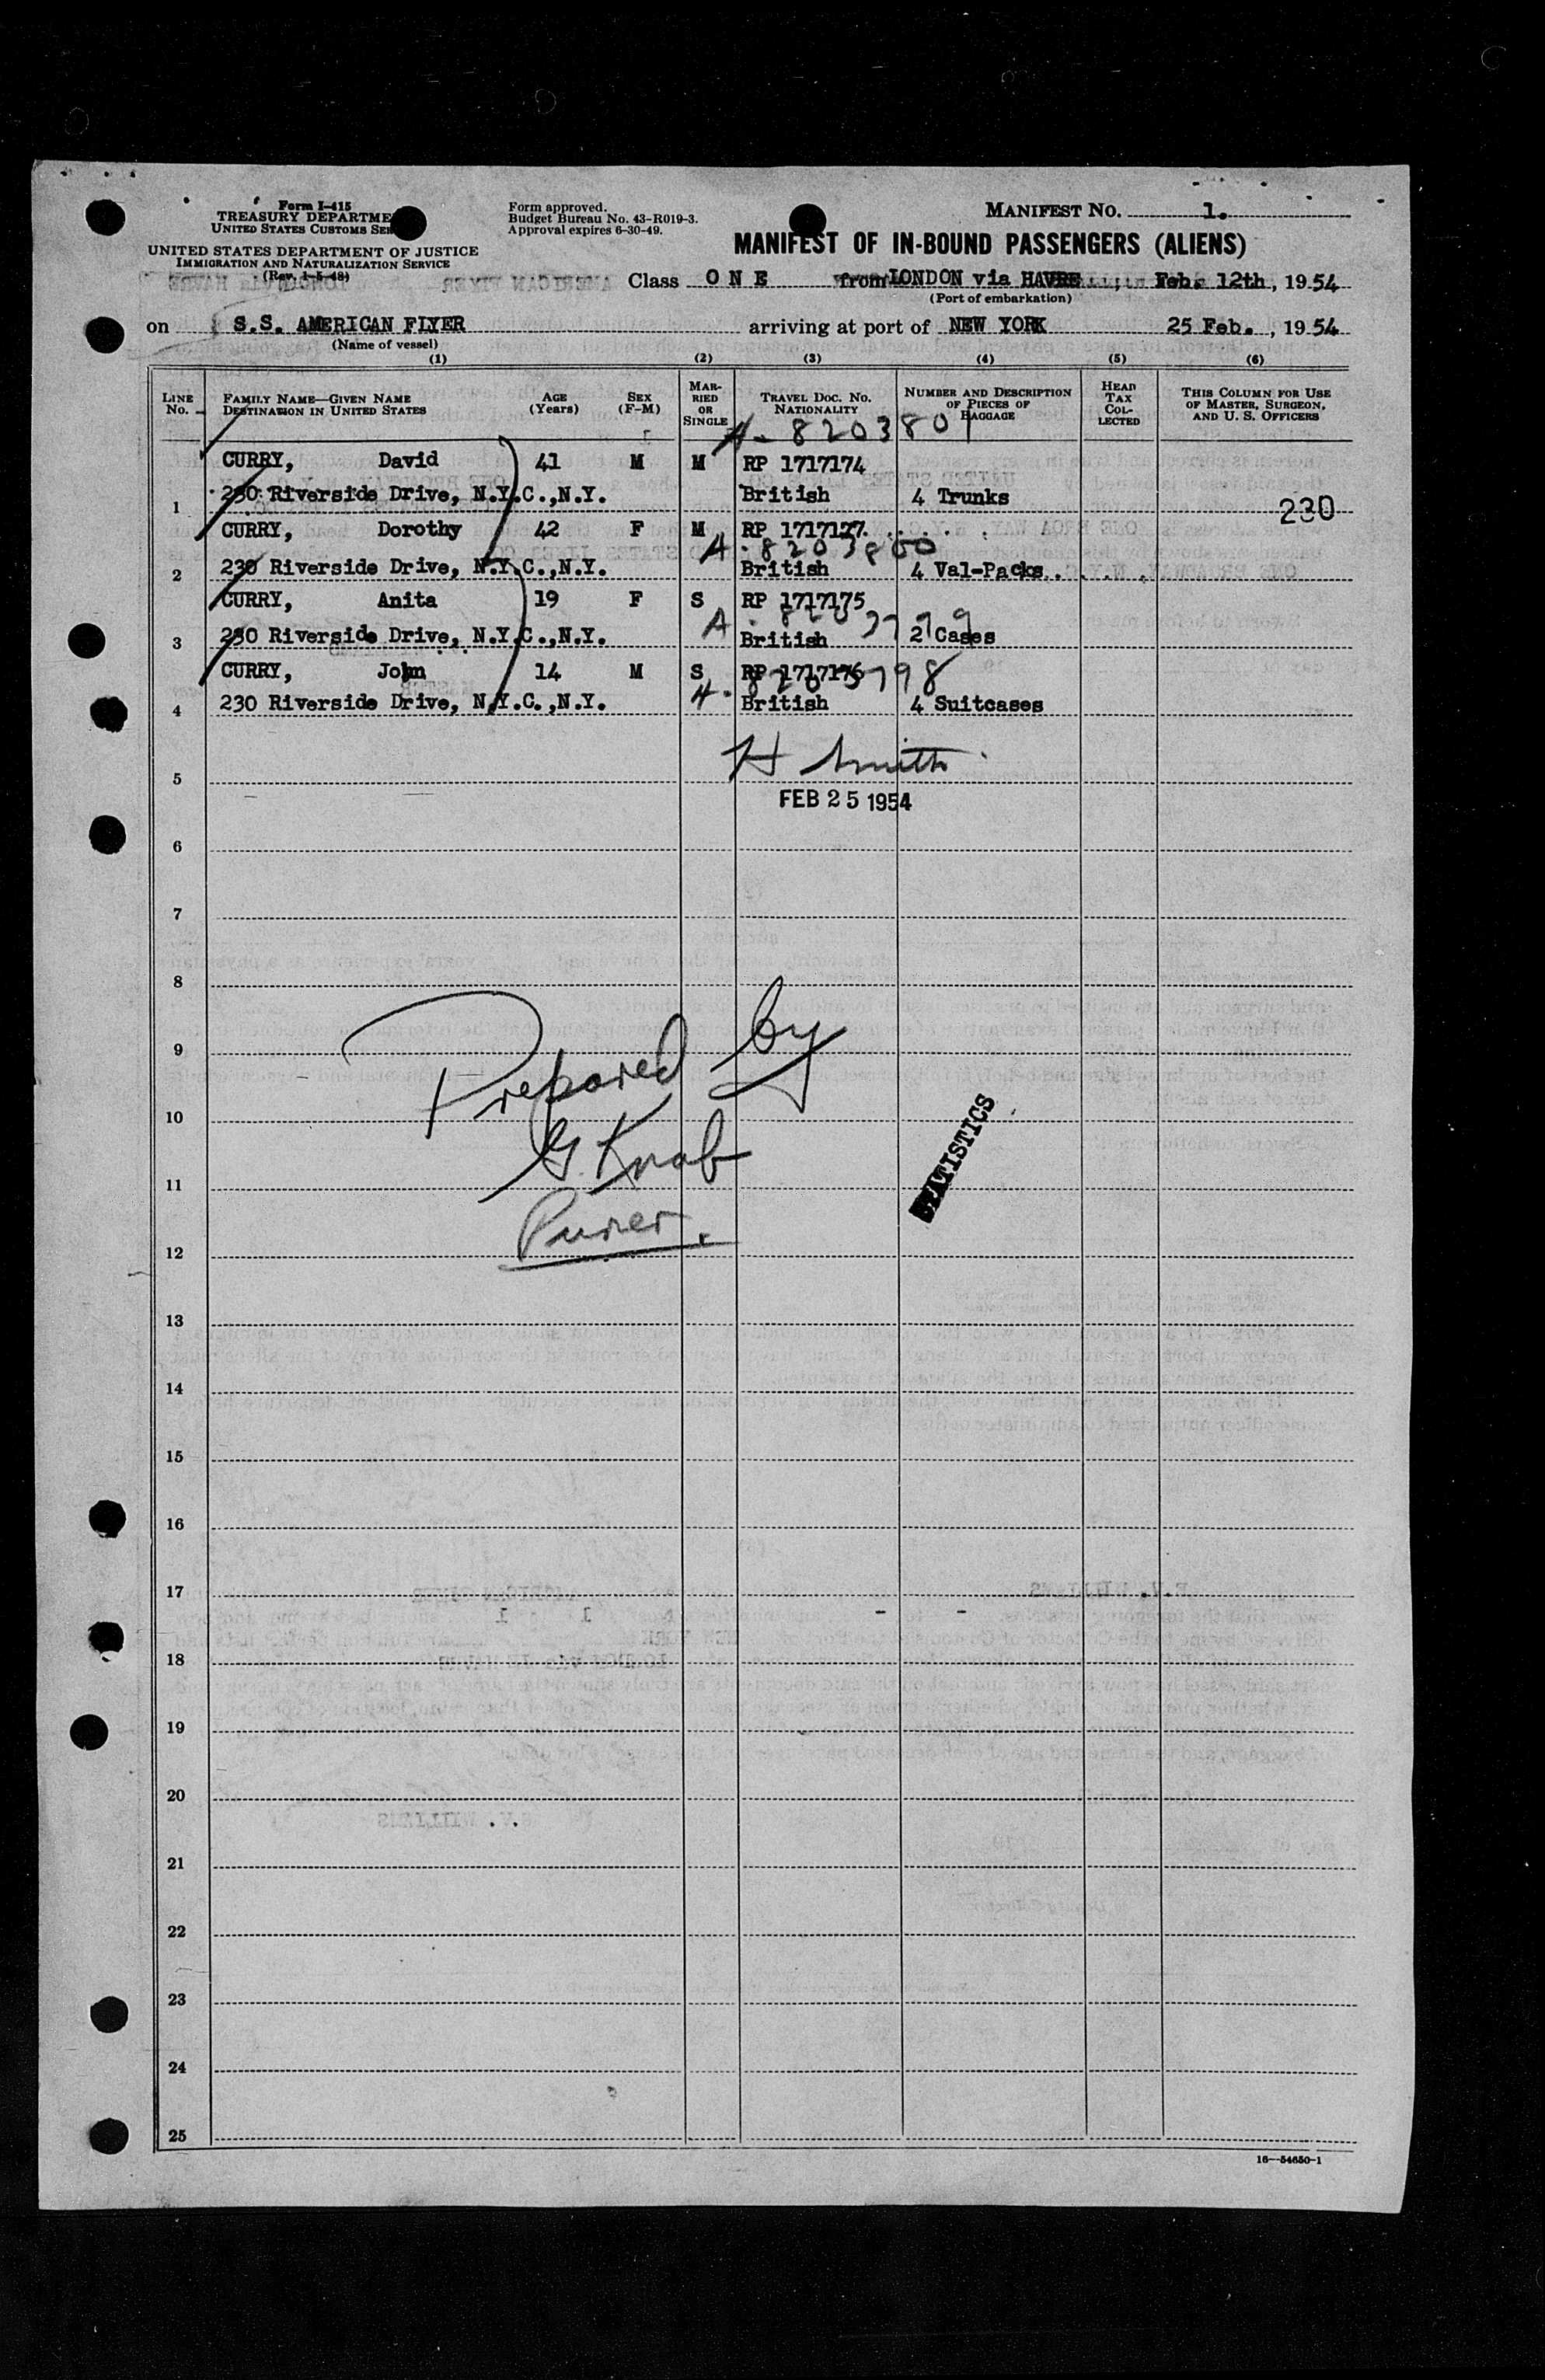 Form I-415
TREASURY DEPARTME
UNITED STATES CUSTOMS SER
UNITED STATES DEPARTMENT OF JUSTICE
IMMIGRATION AND NATURALIZATION SERVICE
(Rev. 1-5-48)
Form approved.
Budget Bureau No. 43-R019-3.
Approval expires 6-30-49.
MANIFEST NO. 1.
MANIFEST OF IN-BOUND PASSENGERS (ALIENS)
Class O N E from LONDON via HAVRE, Feb. 12th, 1954
(Port of embarkation)
on S.S. AMERICAN FLYER arriving at port of NEW YORK 25 Feb., 1954
(Name of vessel)
(1) (2) (3) (4) (5) (6)
LINE NO. FAMILY NAME—GIVEN NAME DESTINATION IN UNITED STATES AGE (Years) SEX (F-M) MARRIED OR SINGLE TRAVEL DOC. NO. NATIONALITY NUMBER AND DESCRIPTION OF PIECES OF BAGGAGE HEAD TAX COLLECTED THIS COLUMN FOR USE OF MASTER, SURGEON, AND U. S. OFFICERS
A-8203801
CURRY, David 41 M M RP 1717174
1 230 Riverside Drive, N.Y.C.,N.Y. British 4 Trunks 230
CURRY, Dorothy 42 F M RP 1717127
A-8203800
2 230 Riverside Drive, N.Y.C.,N.Y. British 4 Val-Packs
CURRY, Anita 19 F S RP 1717175
A-8203799
3 230 Riverside Drive, N.Y.C.,N.Y. British 2 Cases
CURRY, John 14 M S RP 1717176
A-8203798
4 230 Riverside Drive, N.Y.C.,N.Y. British 4 Suitcases
H Smith
5
FEB 25 1954
6
7
8
9
Prepared by
10
G. Knab
11
STATISTICS
Purser.
12
13
14
15
16
17
18
19
20
21
22
23
24
25
16—54650-1